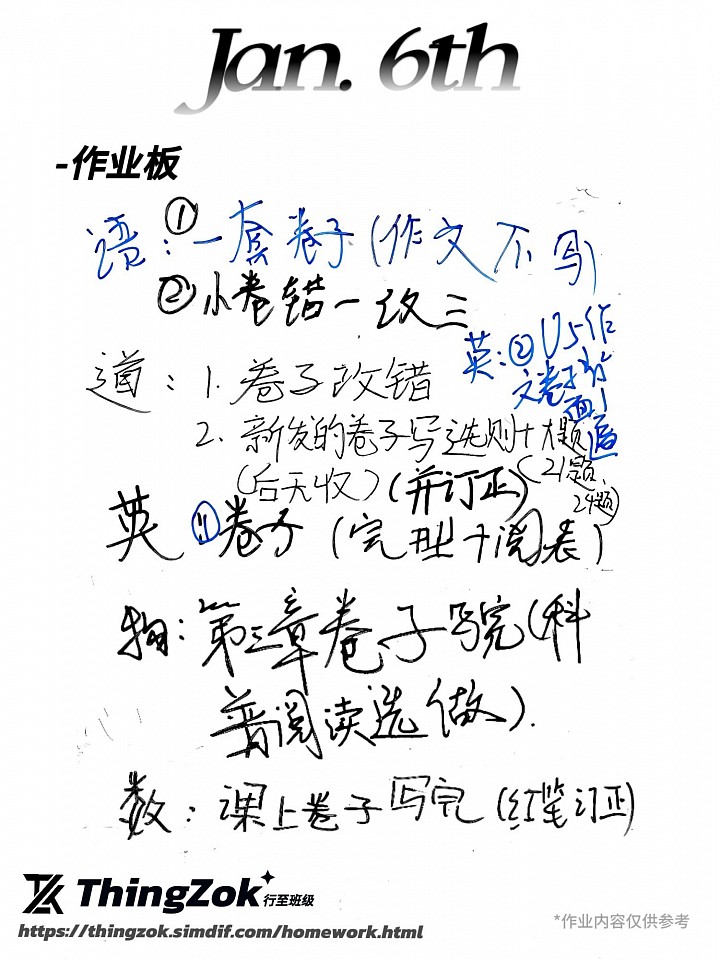 Jan. 6th
-作业板
语:①一套卷子(作文不写)
②小卷错一改三
道:1.卷子改错
2.新发的卷子写选则+大题(21题、24题)
(后天收)(并订正)
英:②U5作
文卷子
英①卷子(完型+阅表)
物:第三章卷子写完(科
普阅读选做).
数:课上卷子写完(红笔订正)
ThingZok
行至班级
https://thingzok.simdif.com/homework.html
*作业内容仅供参考